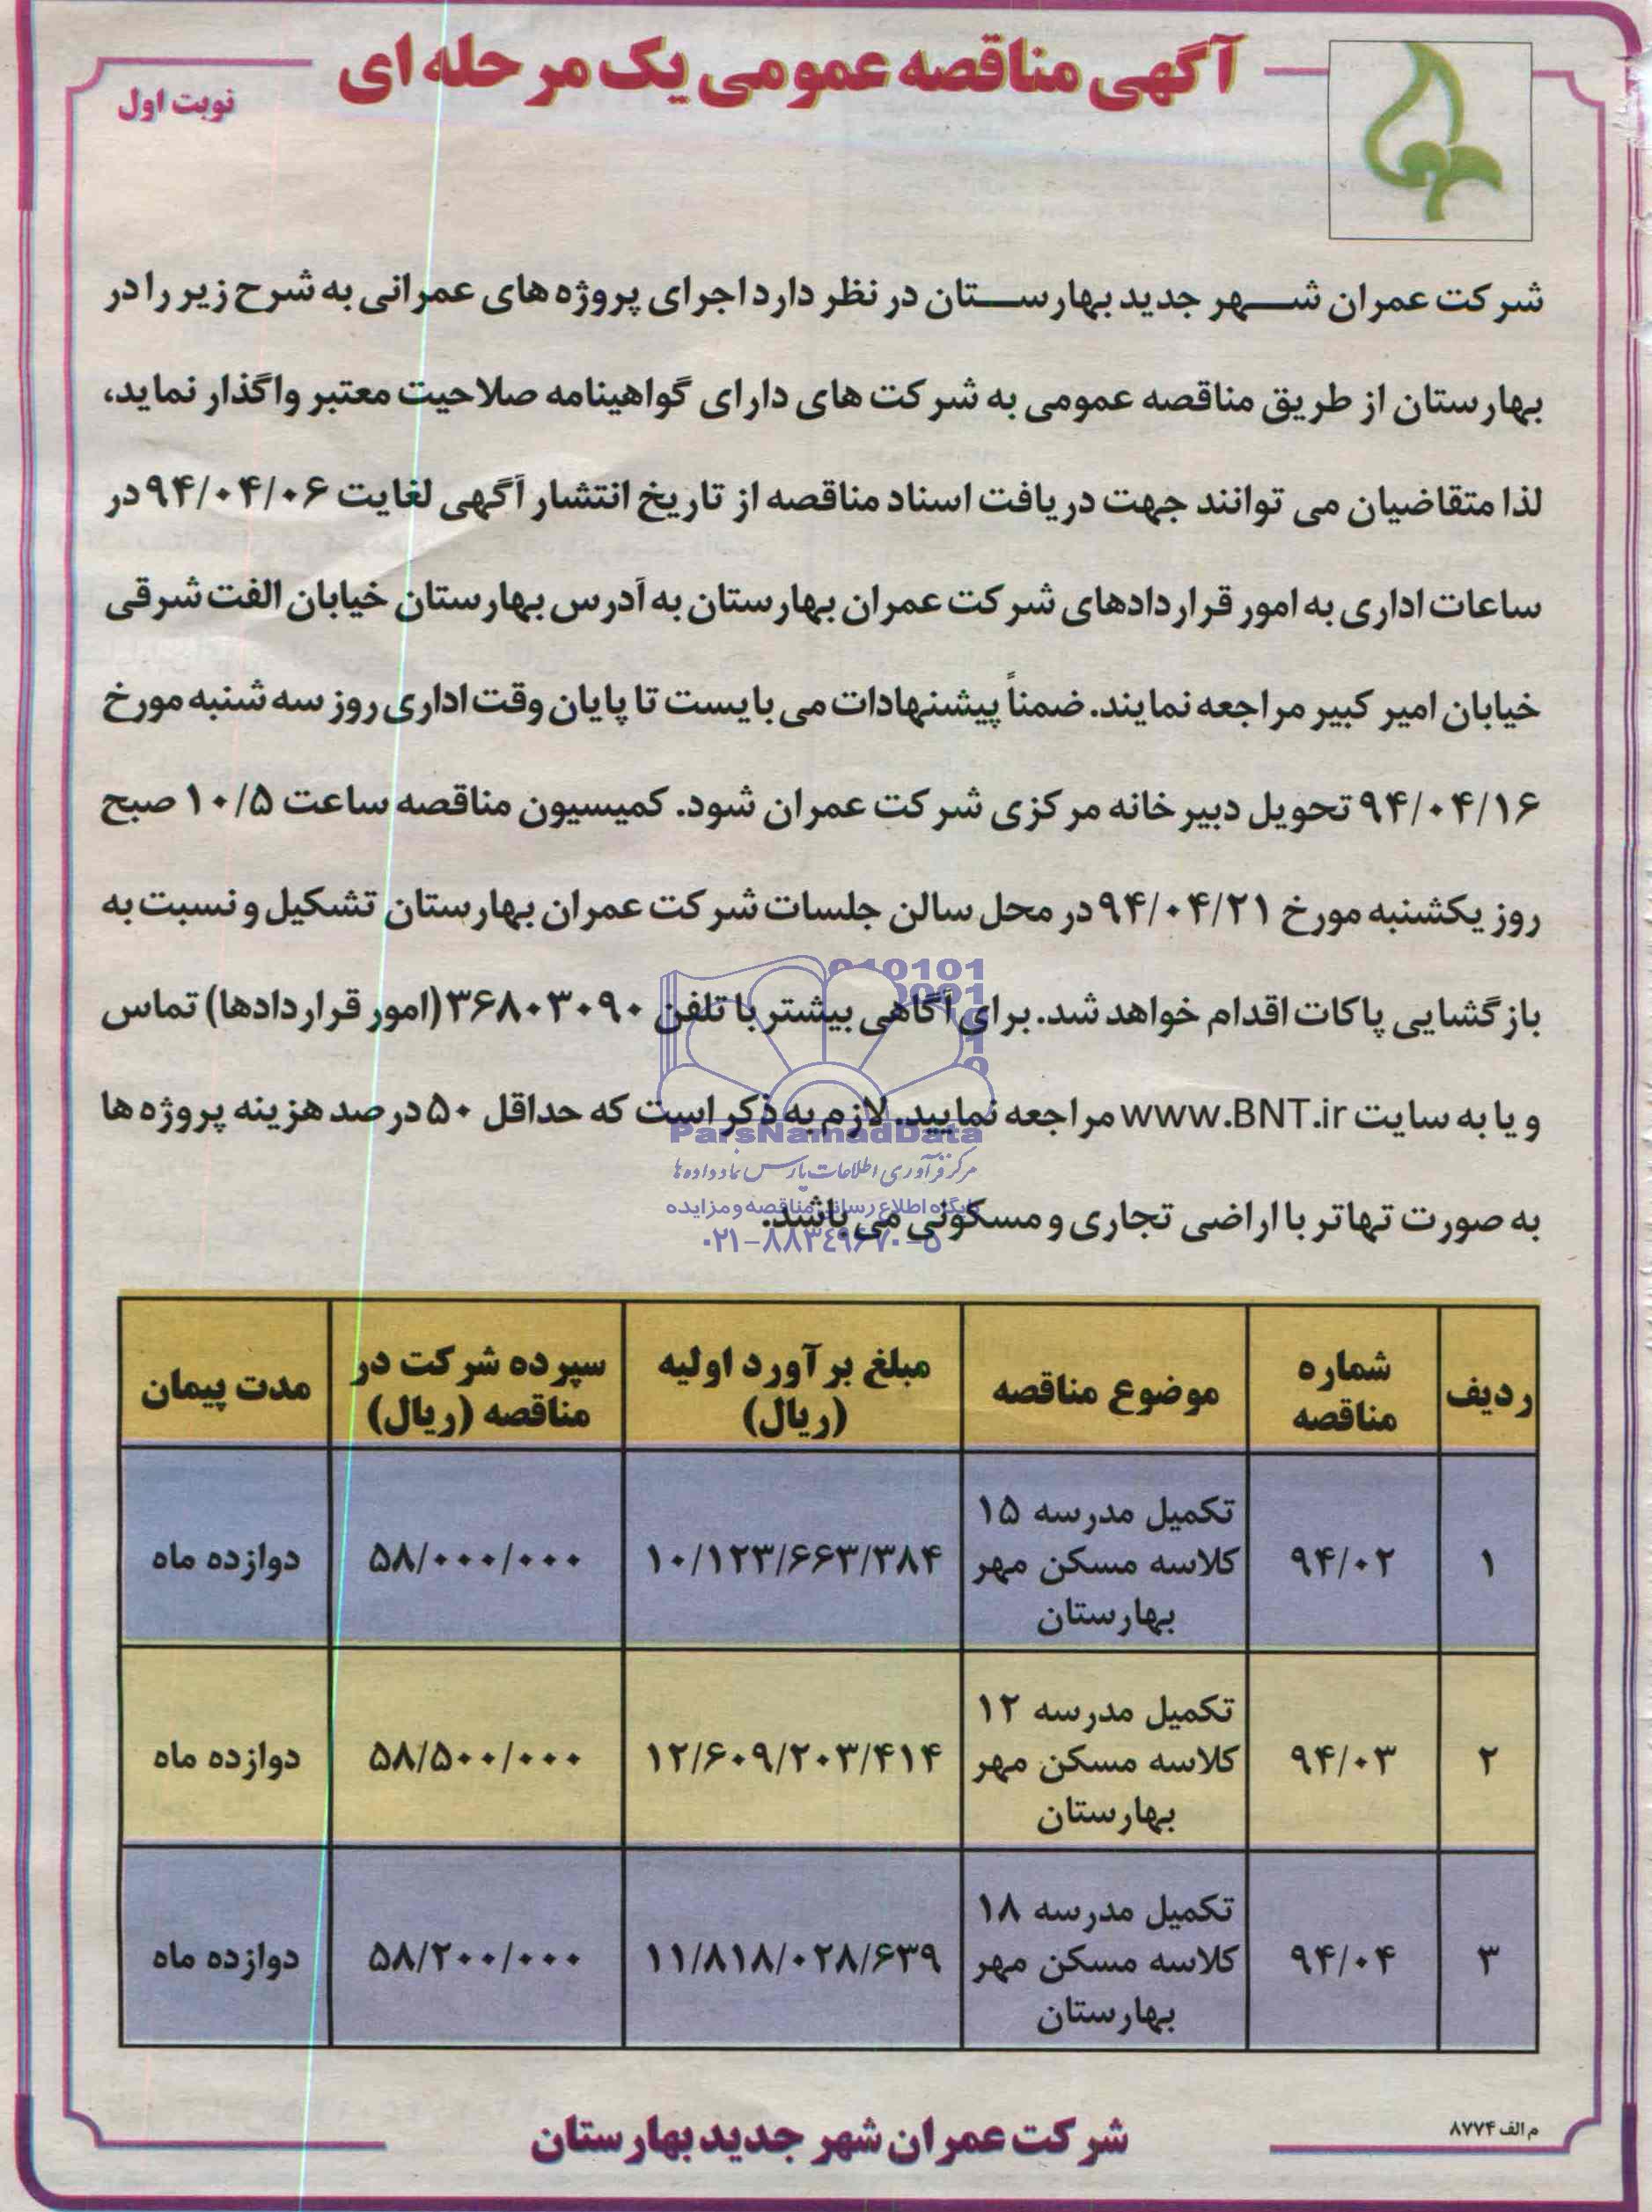 آگهی مناقصه عمومی یک مرحله ای
نوبت اول
شرکت عمران شهر جدید بهارستان در نظر دارد اجرای پروژه های عمرانی به شرح زیر را در
بهارستان از طریق مناقصه عمومی به شرکت های دارای گواهینامه صلاحیت معتبر واگذار نماید،
لذا متقاضیان می توانند جهت دریافت اسناد مناقصه از تاریخ انتشار آگهی لغایت ۹۴/۰۴/۰۶ در
ساعات اداری به امور قراردادهای شرکت عمران بهارستان به آدرس بهارستان خیابان الفت شرقی
خیابان امیر کبیر مراجعه نمایند. ضمناً پیشنهادات می بایست تا پایان وقت اداری روز سه شنبه مورخ
۹۴/۰۴/۱۶ تحویل دبیرخانه مرکزی شرکت عمران شود. کمیسیون مناقصه ساعت ۱۰/۵ صبح
روز یکشنبه مورخ ۹۴/۰۴/۲۱ در محل سالن جلسات شرکت عمران بهارستان تشکیل و نسبت به
بازگشایی پاکات اقدام خواهد شد. برای آگاهی بیشتر با تلفن ۳۶۸۰۳۰۹۰ (امور قراردادها) تماس
و یا به سایت www.BNT.ir مراجعه نمایید. لازم به ذکر است که حداقل ۵۰ درصد هزینه پروژه ها
به صورت تهاتر با اراضی تجاری و مسکونی می باشد.
ParsNamadData
مرکز فرآوری اطلاعات پارس نماد داده ها
پایگاه اطلاع رسانی مناقصه و مزایده
۰۲۱-۸۸۳۴۹۶۷۰-۵
ردیف شماره مناقصه موضوع مناقصه مبلغ برآورد اولیه (ریال) سپرده شرکت در مناقصه (ریال) مدت پیمان
۱ ۹۴/۰۲ تکمیل مدرسه ۱۵ کلاسه مسکن مهر بهارستان ۱۰/۱۲۳/۶۶۳/۳۸۴ ۵۸/۰۰۰/۰۰۰ دوازده ماه
۲ ۹۴/۰۳ تکمیل مدرسه ۱۲ کلاسه مسکن مهر بهارستان ۱۲/۶۰۹/۲۰۳/۴۱۴ ۵۸/۵۰۰/۰۰۰ دوازده ماه
۳ ۹۴/۰۴ تکمیل مدرسه ۱۸ کلاسه مسکن مهر بهارستان ۱۱/۸۱۸/۰۲۸/۶۳۹ ۵۸/۲۰۰/۰۰۰ دوازده ماه
م الف ۸۷۷۴
شرکت عمران شهر جدید بهارستان